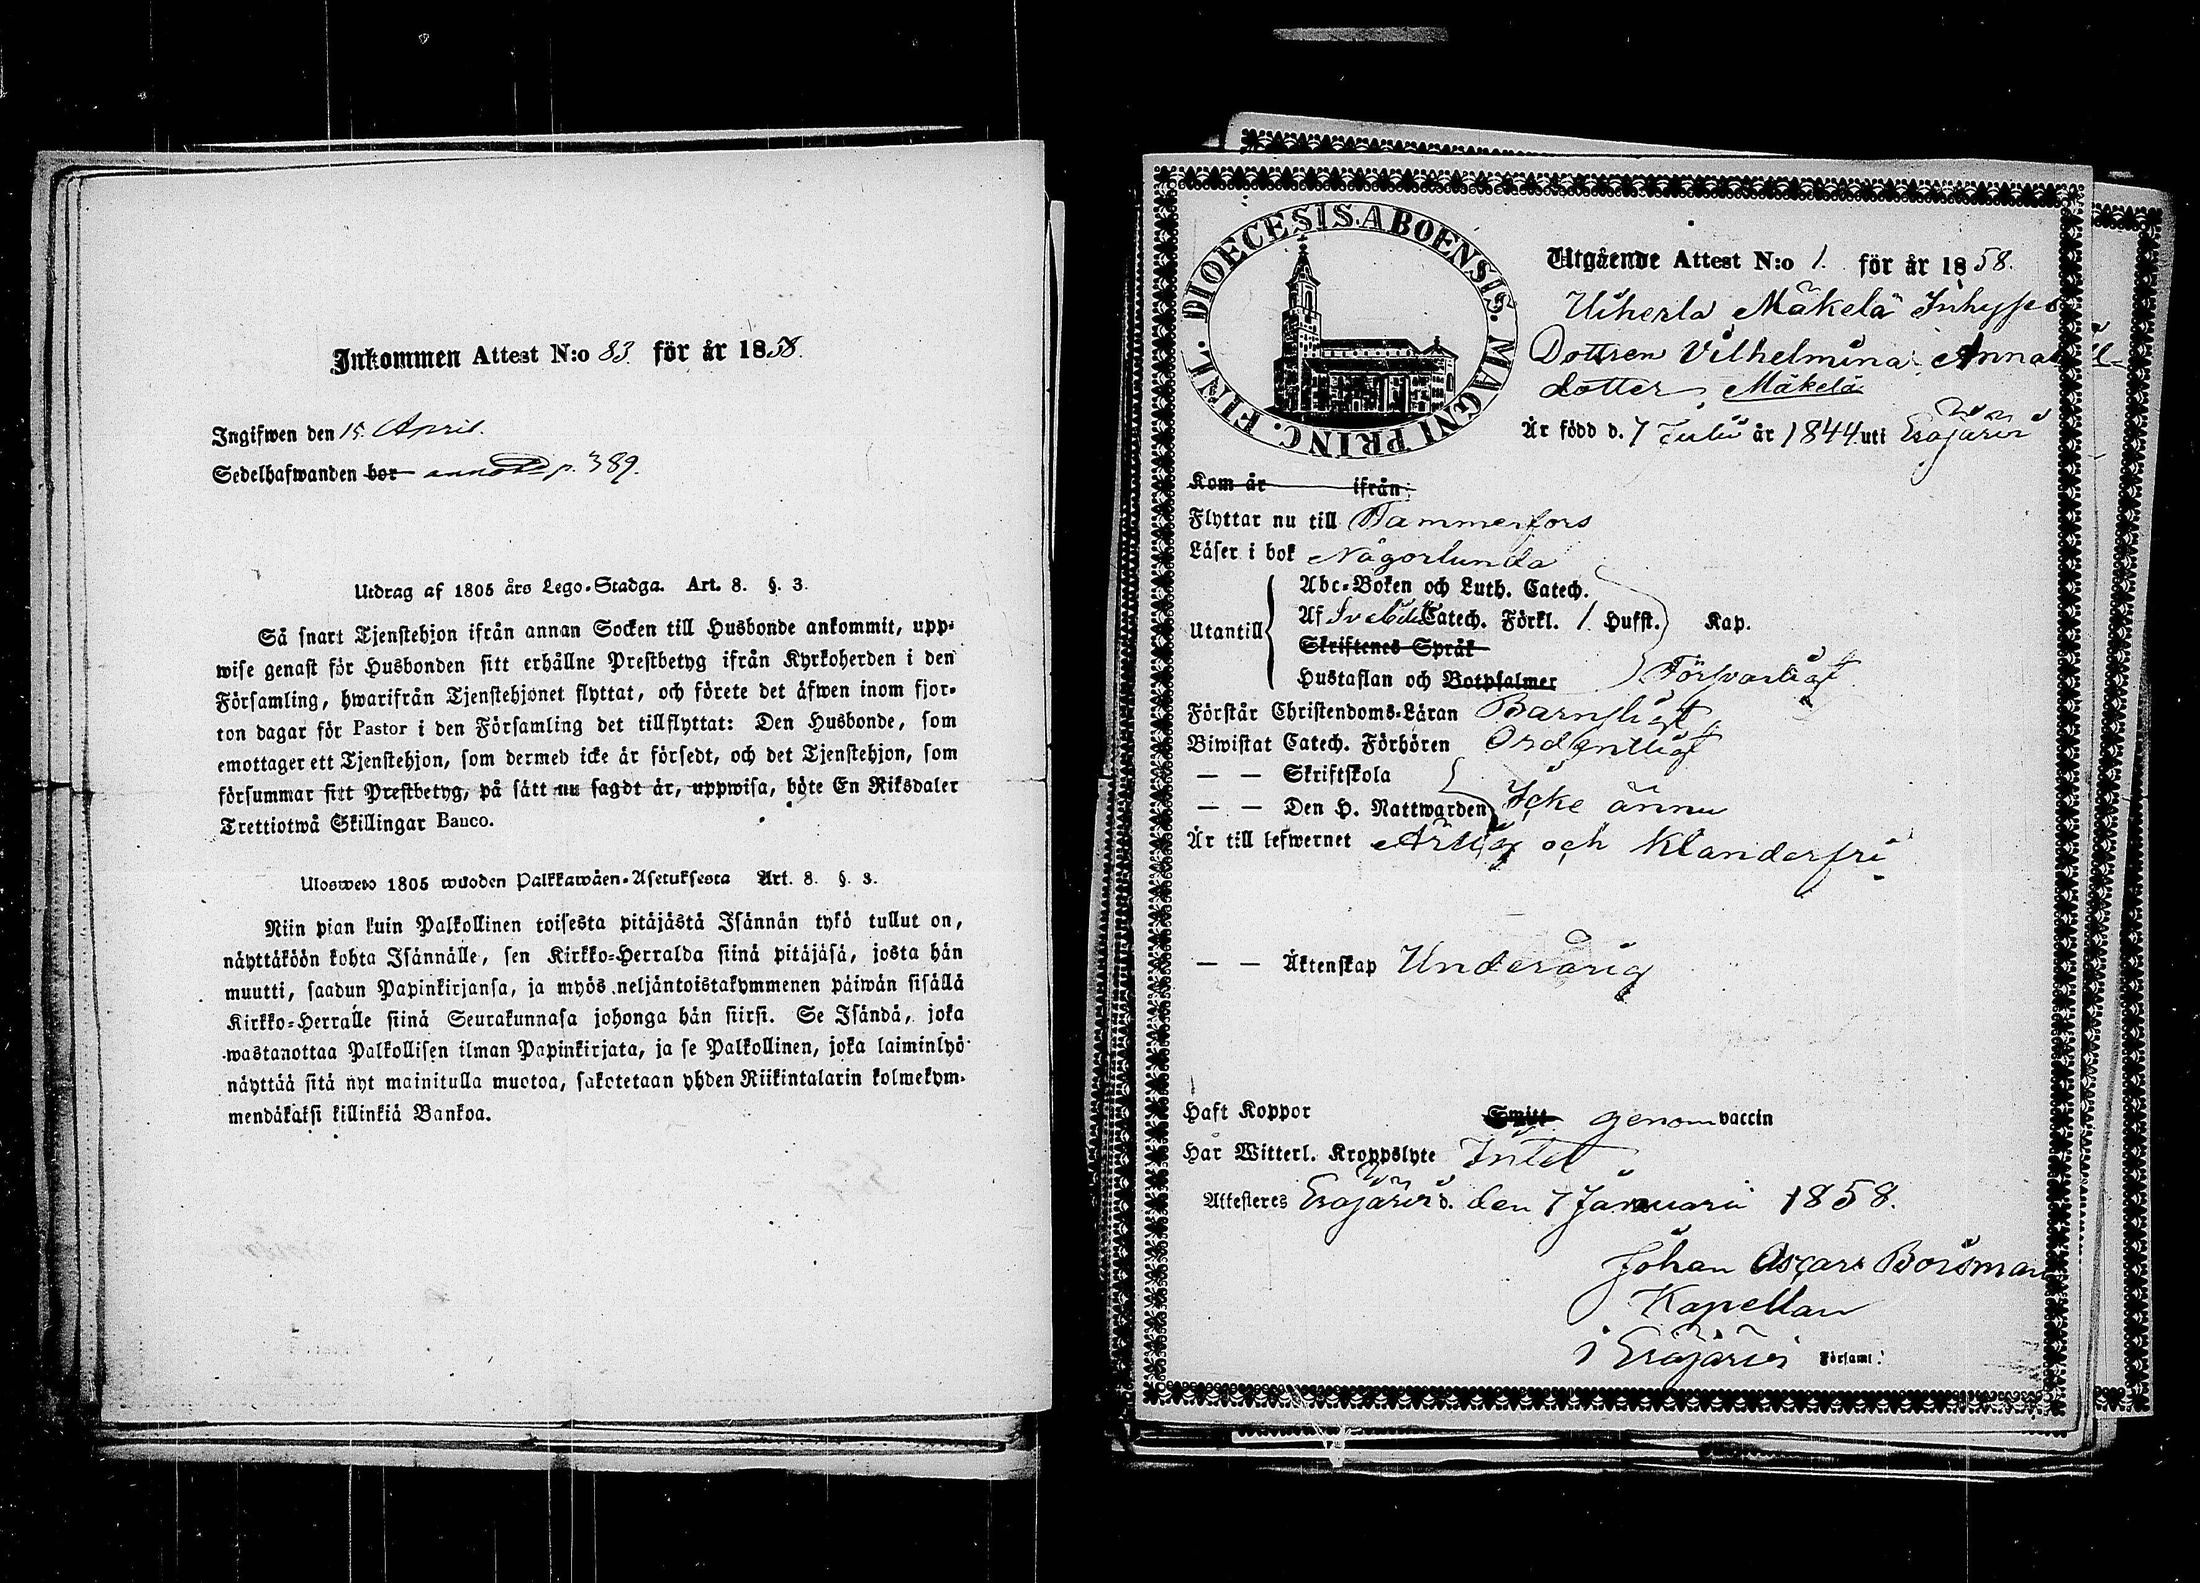 Inkommen Attest N:o 83. för år 1858.
Ingifwen den 15. April.
Sedelhafwanden bor p. 389.
Utdrag af 1805 års Lego-Stadga. Art. 8. §. 3.
Så snart Tjenstehjon ifrån annan Socken till Husbonde ankommit, upp-
wise genast för Husbonden sitt erhållne Prestbetyg ifrån Kyrkoherden i den
Församling, hwarifrån Tjenstehjonet flyttat, och förete det äfwen inom fjor-
ton dagar för Pastor i den Församling det tillflyttat: Den Husbonde, som
emottager ett Tjenstehjon, som dermed icke är försedt, och det Tjenstehjon, som
försummar sitt Prestbetyg, på sätt nu sagdt är, uppwisa, böte En Riksdaler
Trettiotwå Skillingar Banco.
Ulosweto 1805 wuoden Palkkawäen-Asetuksesta Art. 8. §. 3.
Niin pian kuin Palkollinen toisesta pitäjästä Isännän tykö tullut on,
näyttäköön kohta Isännälle, sen Kirkko-Herralda siinä pitäjäsä, josta hän
muutti, saadun Papinkirjansa, ja myös neljäntoistakymmenen päiwän sisällä
Kirkko-Herralle siinä Seurakunnasa johonga hän siirsi. Se Isändä, joka
wastanottaa Palkollisen ilman Papinkirjata, ja se Palkollinen, joka laiminlyö
näyttää sitä nyt mainitulla muotoa, sakotetaan yhden Riikintalarin kolmekym-
mendäkaksi killinkiä Bankoa.
DIOECESIS. ABOENSIS. MAGNI PRINC. FINL.
Utgående Attest N:o 1. för år 1858.
Uiherla Mäkelä Inhyses
Dottren Vilhelmina Anna
dotter Mäkelä
Är född d. 7 Julii år 1844 uti Eräjärvi
Kom år ifrån
Flyttar nu till Tammerfors
Läser i bok Någorlunda
Abc-Boken och Luth. Catech.
Utantill Af Svebilii Catech. Förkl. 1. Hufst. Kap.
Skriftenes Språk
Hustaflan och Botpsalmer Försvarligt
Förstår Christendoms-Läran Barnsligt
Biwistat Catech. Förhören Ordentligt
— — Skriftskola
— — Den H. Nattwarden Icke ännu
Är till lefwernet Artig och Klanderfri
— — Äktenskap Underårig
Haft Koppor Smitt genom vaccin
Har Witterl. Kroppslyte Intet
Attesteres Eräjärvi d. den 7 Januarii 1858.
Johan Oscar Borsman
Kapellan
i Eräjärvi Församl: